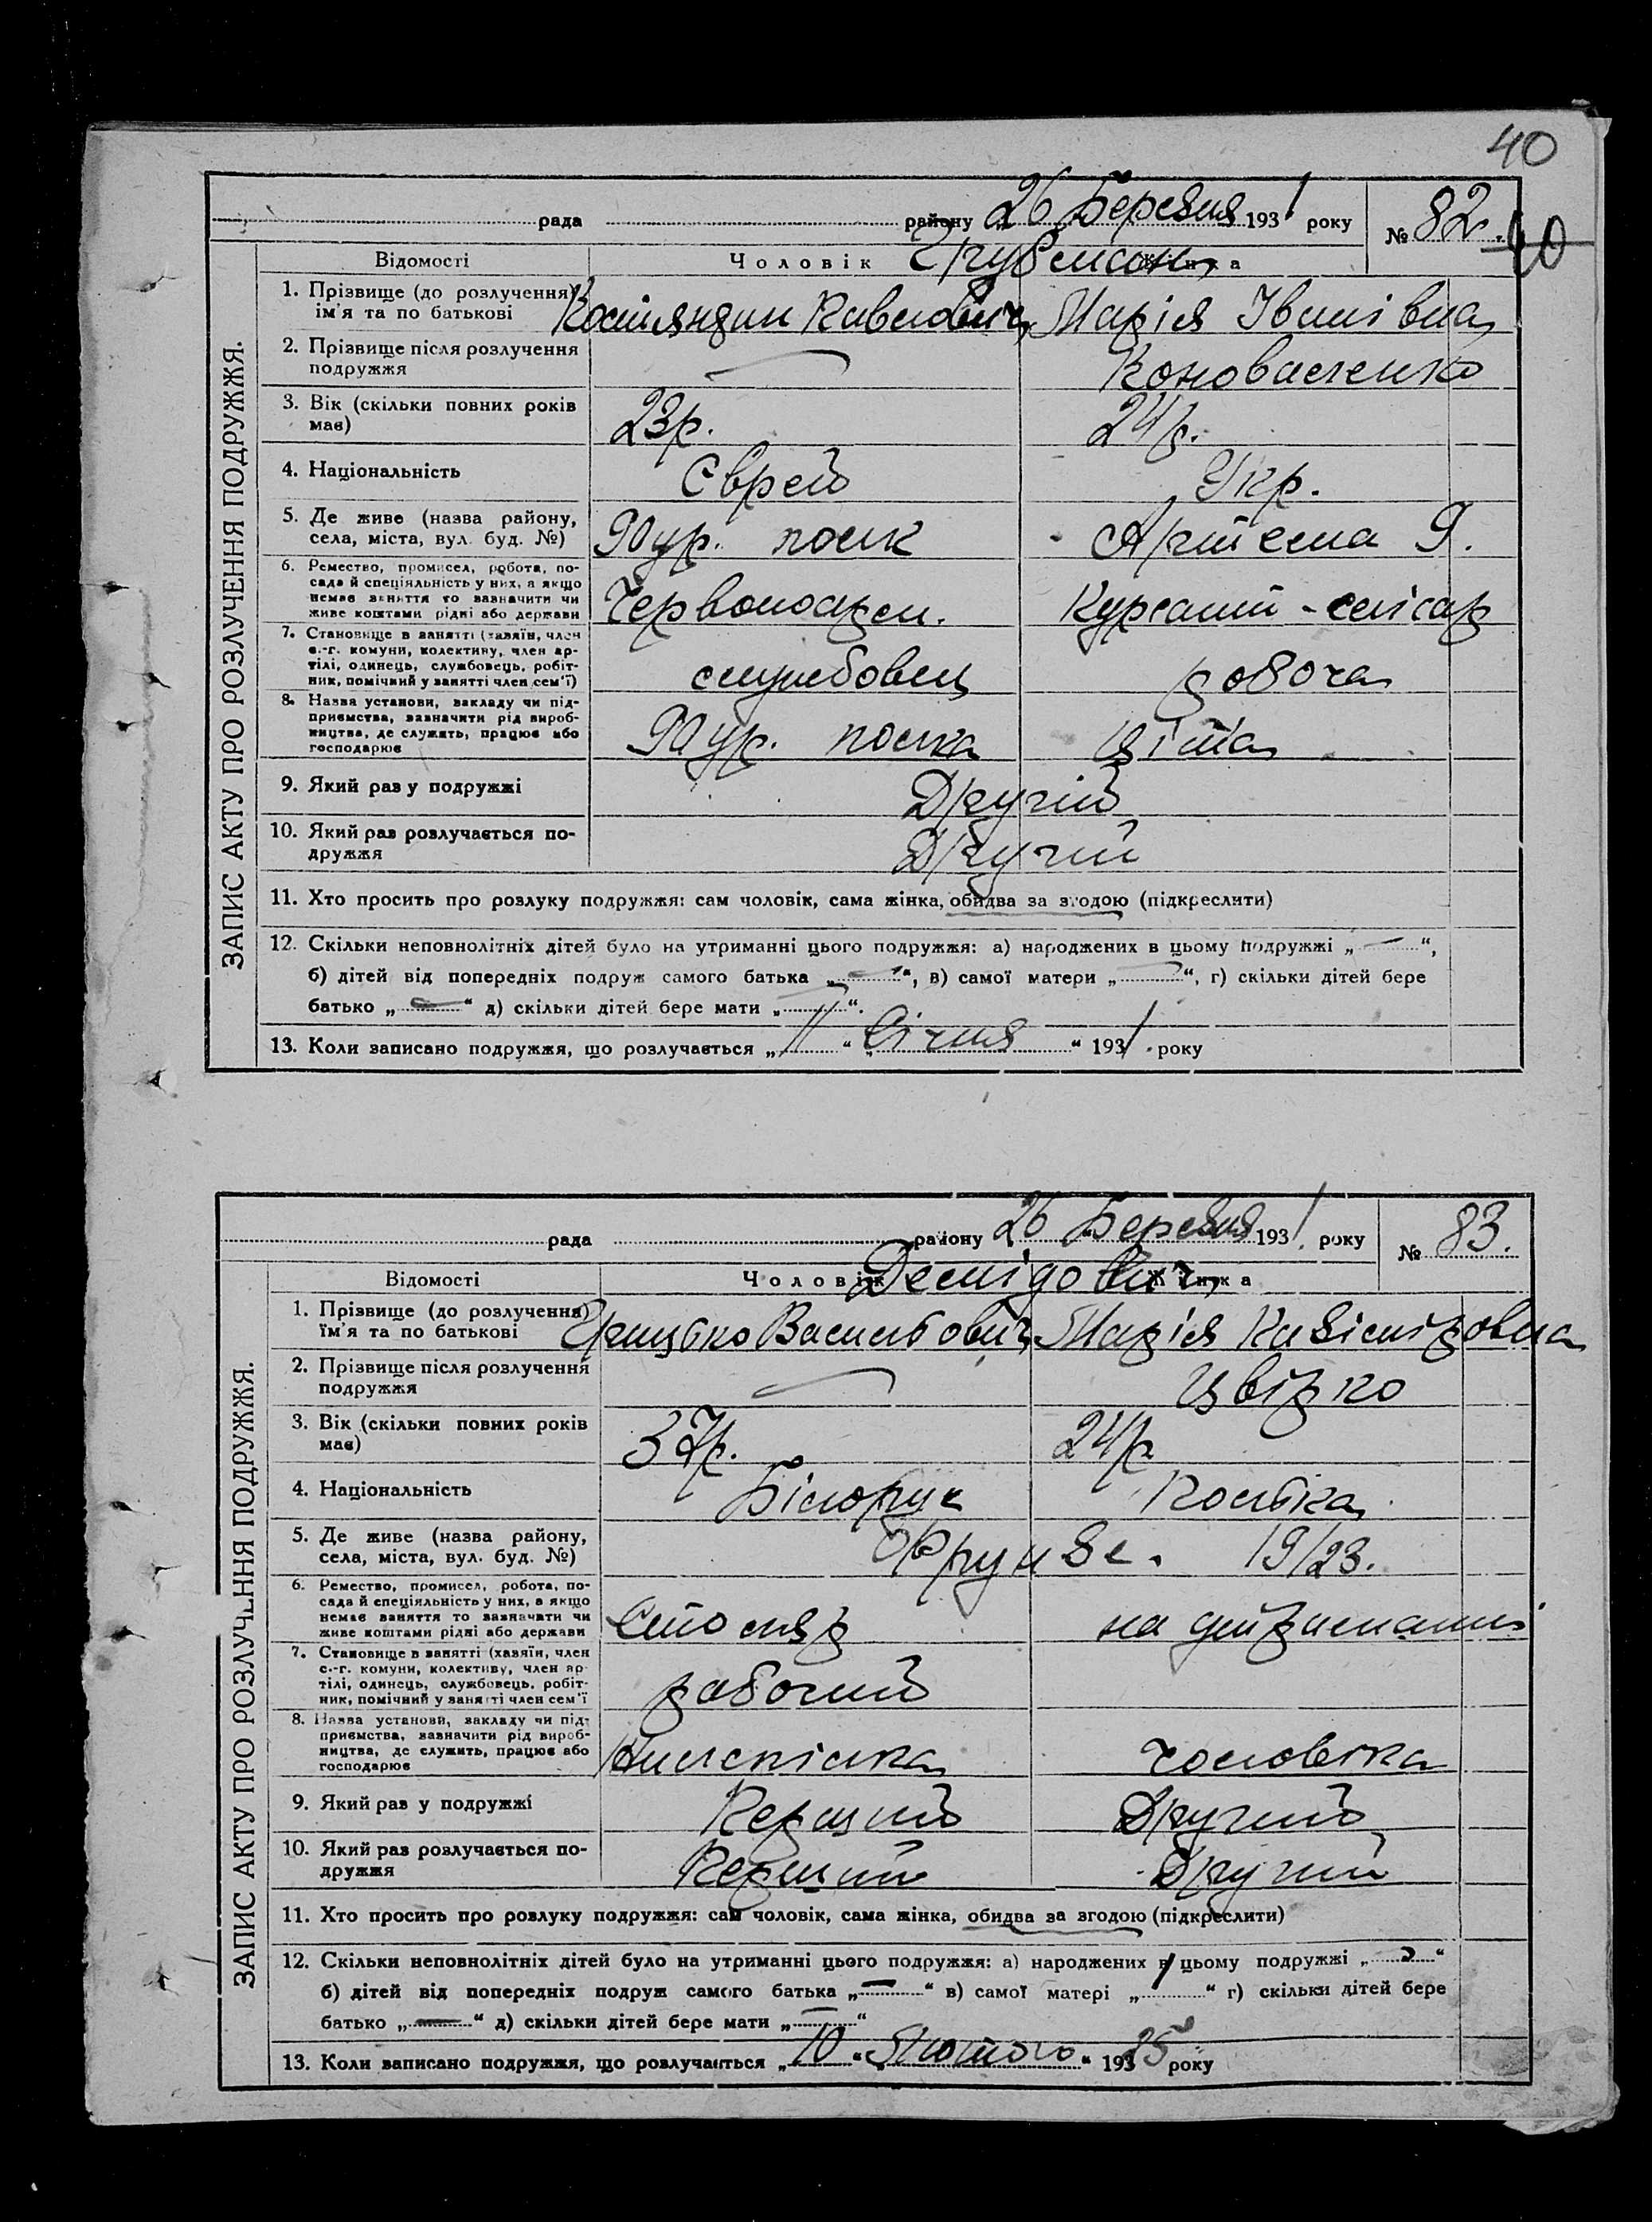 40
рада району 26 Березня 1931 року № 82.
40
Відомості Чоловік Жінка
Грубман
1. Прізвище (до розлучення) ім'я та по батькові
Костянтин Павлович Марія Іванівна
2. Прізвище після розлучення подружжя
— Коноваленко
3. Вік (скільки повних років має)
23р. 24р.
4. Національність
Єврей Укр.
5. Де живе (назва району, села, міста, вул. буд. №)
полк Артема 9.
6. Ремество, промисел, робота, посада й спеціяльність у них, а якщо немає заняття то зазначити чи живе коштами рідні або держави
Червоноарм. Курсант - слюсар
7. Становище в занятті (хазяїн, член с.-г. комуни, колективу, член артілі, одинець, службовець, робітник, помічний у занятті член сем'ї)
службовец робоча
8. Назва установи, закладу чи підприємства, зазначити рід виробництва, де служить, працює або господарює
полка
9. Який раз у подружжі
Другий
10. Який раз розлучається подружжя
Другий
11. Хто просить про розлуку подружжя: сам чоловік, сама жінка, обидва за згодою (підкреслити)
12. Скільки неповнолітніх дітей було на утриманні цього подружжя: а) народжених в цьому подружжі „—“,
б) дітей від попередніх подруж самого батька „—“, в) самої матери „—“, г) скільки дітей бере
батько „—“ д) скільки дітей бере мати „—“.
13. Коли записано подружжя, що розлучається „11“ „Січня“ 1931. року
ЗАПИС АКТУ ПРО РОЗЛУЧЕННЯ ПОДРУЖЖЯ.
рада району 26 Березня 1931. року № 83.
Відомості Чоловік Жінка
Демідович
1. Прізвище (до розлучення) їм'я та по батькові
Грицько Васильович Марія Казіміровна
2. Прізвище після розлучення подружжя
— Цвірко
3. Вік (скільки повних років має)
37р. 24р
4. Національність
Білорук Полька
5. Де живе (назва району, села, міста, вул. буд. №)
Фрунзе. 19/23.
6. Ремество, промисел, робота, посада й спеціяльність у них, а якщо немає заняття то зазначати чи живе коштами рідні або держави
Столяр на
7. Становище в занятті (хазяїн, член с.-г. комуни, колективу, член артілі, одинець, службовець, робітник, помічний у занятті член сем'ї
рабочий
8. Назва установи, закладу чи підприємства, зазначити рід виробництва, де служить, працює або господарює
чоловіка
9. Який раз у подружжі
Перший Другий
10. Який раз розлучається подружжя
Перший Другий
11. Хто просить про розлуку подружжя: сам чоловік, сама жінка, обидва за згодою (підкреслити)
12. Скільки неповнолітніх дітей було на утриманні цього подружжя: а) народжених в цьому подружжі „—“
б) дітей від попередніх подруж самого батька „—“ в) самої матері „—“ г) скільки дітей бере
батько „—“ д) скільки дітей бере мати „—“
13. Коли записано подружжя, що розлучається „10“ „Лютого“ 193 25 року
ЗАПИС АКТУ ПРО РОЗЛУЧЕННЯ ПОДРУЖЖЯ.